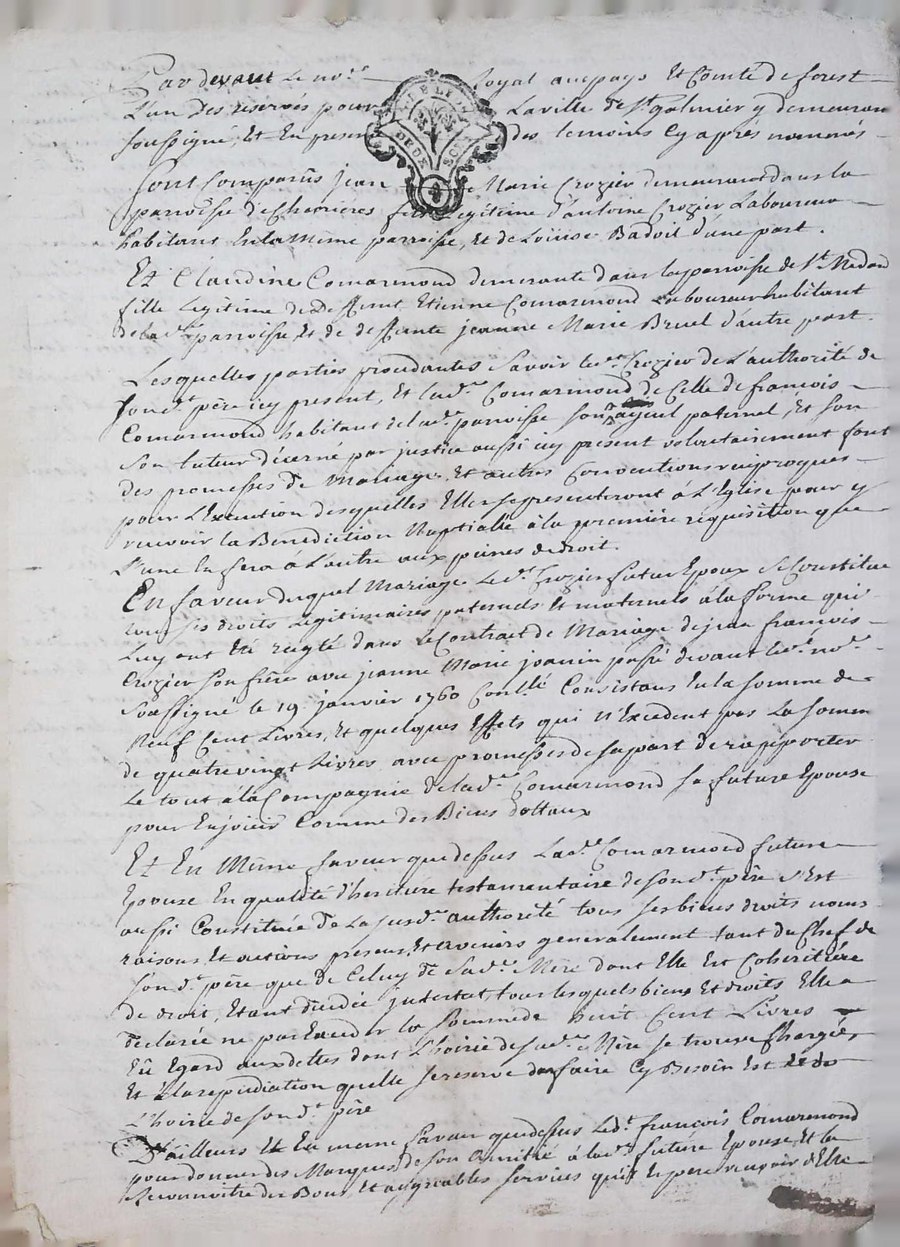 Par devant Le no.re Royal au pays Et Comté de forest
L'un Des reservés pour La ville de St galmier y demeurant
soussigné, Et En presence des temoins Cy après nommés
Sont Comparus jean Marie Crozier demeurant dans la
parroisse de Chevrières fils Legitime d'antoine Crozier Laboureur
habitans En la Même parroisse, Et de Loüise Badoil d'une part.
Et Claudine Comarmond demeurante dans la parroisse de St Medard
fille Legitime de deffunt Etienne Comarmond Laboureur habitant
de la de. parroisse, Et de deffunte jeanne Marie Bruel d'autre part.
Lesquelles parties procedantes Savoir led.t Crozier de L'authorité de
son d.t père icy present, Et lad.e Comarmond de Celle de francois
Comarmond habitant de lad.e parroisse son ayeul paternel, Et son
son tuteur décerné par justice aussi icy present volontairement font
des promesses de Mariage, Et autres Conventions reciproques
pour L'Execution desquelles Elles se presenteront à L'Eglise pour y
recevoir la Benediction Nuptialle à la première requisition que
L'une En fera à L'autre aux peines de droit.
En faveur duquel Mariage Le d.t Crozier futur Epoux Se Constitue
tous ses droits Legitimaires paternels Et maternels à la forme qui
Luy ont été reglé dans le Contrat de Mariage de jean francois
Crozier Son frère avec jeanne Marie joanin passé devant led.t no.re
Soussigné le 19 janvier 1760 Conllé Consistans En la somme de
Neuf Cent Livres, Et quelques Effets qui N'Excedent pas La somme
de quatre vingt Livres avec promesses de sa part de rapporter
Le tout à la Compagnie de lad.e Comarmond Sa future Epouse
pour En joüir Comme des Biens dottaux
Et En Même faveur que dessus Lad.e Comarmond future
Epouse En qualité d'heritière testamentaire de son d.t père s'Est
aussi Constituée De La susd.e authorité tous ses biens droits noms
raisons Et actions presens, Et avenirs generalement tant du Chef de
Son d.t père que de Celuy de Sad.e Mère dont Elle Est Coheritière
de droit, Etant decedée intestat, tous lesquels biens Et droits Elle a
declaré ne pas Exceder la Somme de huit Cent Livres
Eû Egard aux dettes dont L'hoirie de sad.e Mère se trouve Chargée,
Et à la repudiation quelle se reserve d'en faire Cy Besoin Est
L'hoirie de son d.t père
D'ailleurs Et En meme faveur que dessus Led.t francois Comarmond
pour donner des Marques de son Amitié à lad.e future Epouse, Et la
Reconnoitre des Bons, Et agreables services quil Espere recevoir d'Elle